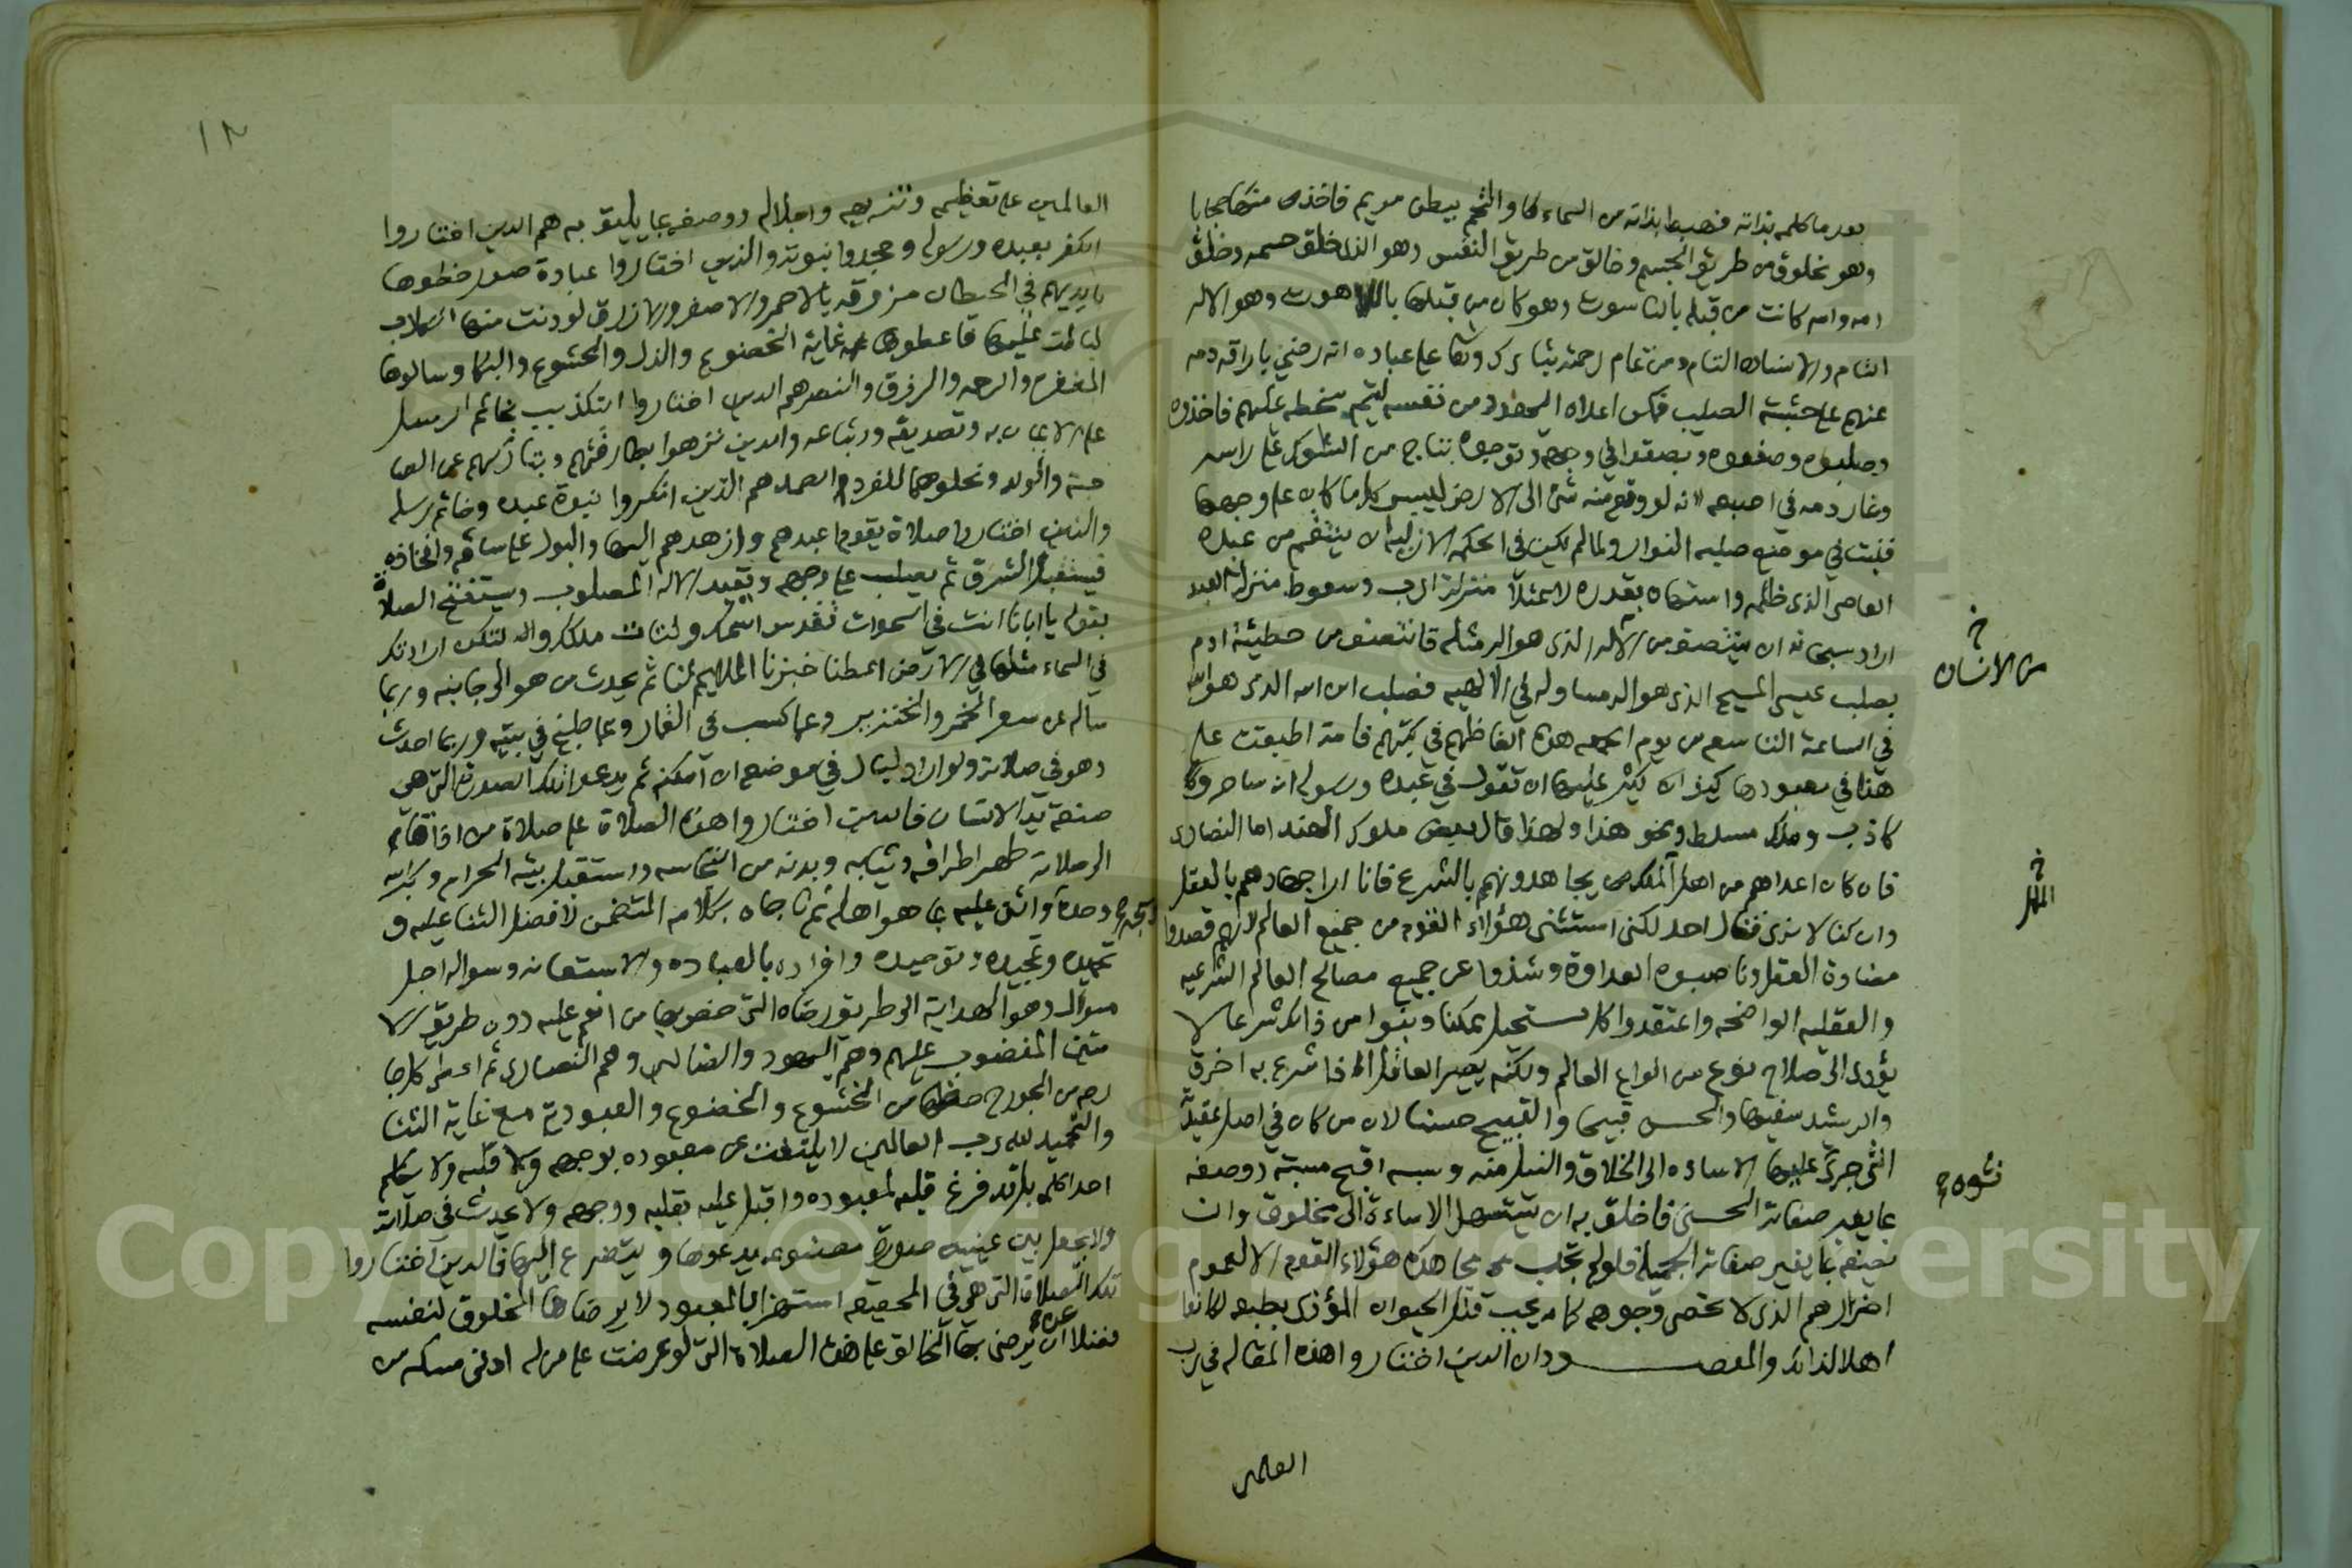 بعدما كلمه بذاته فهبط بذاته من السماء والتحم ببطن مريم فاخذ منها حجابا
وهو مخلوق من طريق الجسم وخالق من طريق النفس وهو الذي خلق جسمه وخلق
امه وامه كانت من قبله بالناسوت وهو كان من قبلها باللاهوت وهو الاله
التام والانسان التام ومن تمام رحمته تبارك وتعا على عباده انه رضي باراقة دمه
عنهم على خشبة الصليب فمكن اعداه اليهود من نفسه ليتم سخطه عليهم فاخذوه
وصلبوه وصفعوه وبصقوا في وجهه وتوجوه بتاج من الشوك على راسه
وغار دمه في اصبعه لانه لو وقع منه شئ الى الارض ليبس كل ما كان على وجهها
فثبت في موضع صلبه النوار ولما لم يكن في الحكمة الازلية ان ينتقم من عبده
العاصي الذي ظلمه واستهان بقدره لاعتلاء منزلة الرب وسقوط منزلة العبد
اراد سبحانه ان ينتصف من الاله الذي هو اله مثله فانتصف من خطيئة ادم
بصلب عيسى المسيح الذي هو اله مساو له في الالهيه فصلب ابن الله الذي هو الله
في الساعة التاسعه من يوم الجمعه هذه الفاظهم في كتبهم فامة اطبقت على
هذا في معبودها كيف يكثر عليها ان تقول في عبده ورسوله انه ساحر و
كاذب وملك مسلط ونحو هذا ولهذا قال بعض ملوك الهند اما النصارى
فان كان اعداهم من اهل يجاهدونهم بالشرع فانا ارا جهادهم بالعقل
وان كنا لا نرى قتال احد لكنى استثنى هؤلاء القوم من جميع العالم لانهم قصدوا
مضادة العقل وناصبوه العداوة وشذوا عن جميع مصالح العالم الشرعيه
والعقليه الواضحه واعتقدوا كل مستحيل ممكنا وبنوا من ذلك شرعا لا
يؤدى الى صلاح نوع من انواع العالم ولكنه يصير العاقل اذا شرع به اخرق
والرشيد سفيها والحسن قبيحا والقبيح حسنا لان من كان في اصل عقيدته
التى جرى عليها الاساءه الى الخلاق والنيل منه وسبه اقبح مسبة ووصفه
بما يغير صفاته الحسنى فاخلق به ان يستسهل الاساءة الى مخلوق وان
يصفه بما يغير صفاته الجميله فلو لم تجب مجاهدة هؤلاء القوم الا لعموم
اضرارهم الذى لا تحصى وجوهه كما يجب قتل الحيوان المؤذى بطبعه لكانوا
اهلا لذلك والمقصود ان الذين اختاروا هذه المقاله في رب
العالمين
خ
من الانسان
خ
الملل
نشوه
١٢
العالمين على تعظيمه وتنزيهه واجلاله ووصفه بما يليق به هم الذين اختاروا
الكفر بعبده ورسوله وجحدوا نبوته والذين اختاروا عبادة صور خطوها
بايديهم في الحيطان مزوقه بالاحمر والاصفر والازرق لو دنت منها الكلاب
لبالت عليها فاعطوها غاية الخضوع والذل والخشوع والبكا وسالوها
المغفره والرحمه والرزق والنصر هم الذين اختاروا التكذيب بخاتم الرسل
على الايمان به وتصديقه واتباعه والذين نزهوا بطارقتهم وبتاركهم عن الصا
حبة والولد ونحلوهما للفرد الصمد هم الذين انكروا نبوة عبده وخاتم رسله
والذين اختاروا صلاة يقوم اعبدهم وازهدهم اليها والبول على ساقه وافخاذه
فيستقبل الشرق ثم يصلب على وجهه ويعبد الاله المصلوب ويستفتح الصلاة
بقوله يا ابانا انت في السموات تقدس اسمك وليات ملكك ولتكن ارادتك
في السماء مثلها في الارض اعطنا خبزنا الملايم لنا ثم يحدث من هو الى جانبه وربما
ساله عن سعر الخمر والخنزير وعما كسب في القمار وعما طبخ في بيته وربما احدث
وهو في صلاته ولو اراد لبال في موضعه ان امكنه ثم يدعوا تلك الصورة التى هي
صنعة يد الانسان فالذين اختاروا هذه الصلاة على صلاة من اذا قام
الى صلاته طهر اطرافه وثيابه وبدنه من النجاسه واستقبل بيته الحرام وكبر الله
وحده واثنى عليه بما هو اهله ثم ناجاه بكلامه المتضمن لافضل الثنا عليه و
تحميده وتمجيده وتوحيده وافراده بالعباده والاستعانه وسواله اجل
سوال وهو الهداية الى طريق رضاه التى خص بها من انعم عليه دون طريق الا
متين المغضوب عليهم وهم اليهود والضالين وهم النصارى ثم اعطى كل جا
رحه من الجوارح حظها من الخشوع والخضوع والعبودية مع غاية الثنا
والتحميد لله رب العالمين لا يلتفت عن معبوده بوجهه ولا قلبه ولا يكلم
احدا كلمه بل قد فرغ قلبه لمعبوده واقبل عليه بقلبه ووجهه ولا يحدث في صلاته
ولا يجعل بين عينيه صورة مصنوعه يدعوها ويتضرع اليها فالذين اختاروا
تلك الصلاة التى هي في الحقيقه استهزا بالمعبود لا يرضاها المخلوق لنفسه
فضلا ان يرضى بها الخالق على هذه الصلاة التى لو عرضت على من له ادنى مسكه من